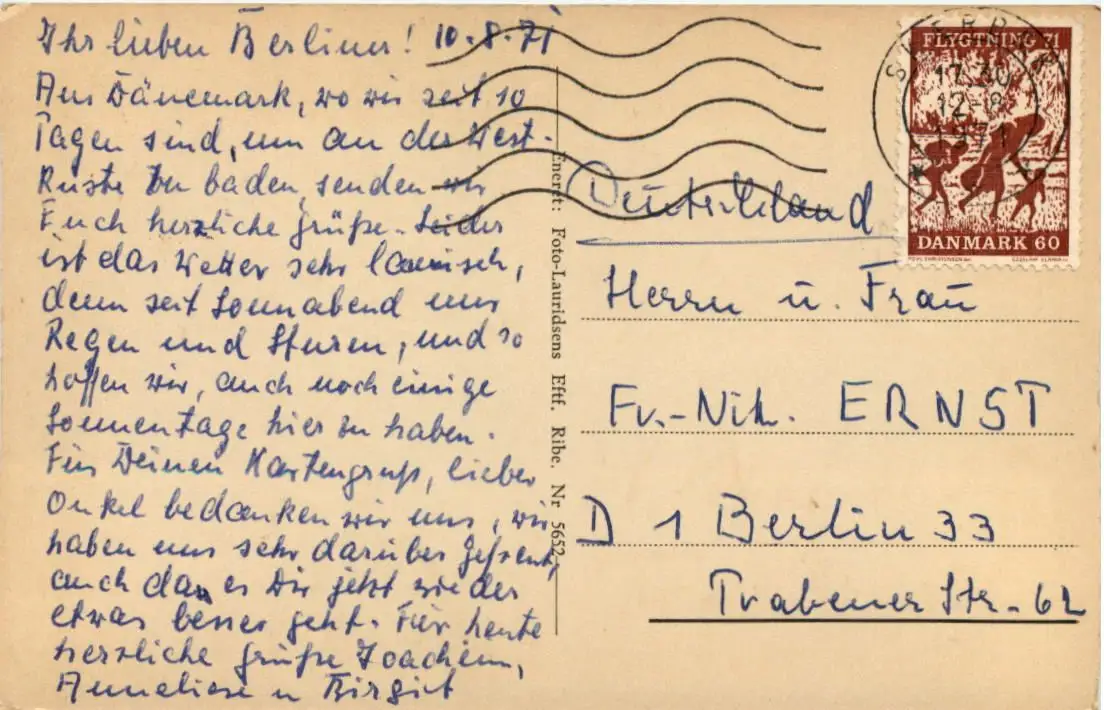 Ihr lieben Berliner! 10.8.71
Aus Dänemark, wo wir seit 10
Tagen sind, um an der West-
küste zu baden, senden wir
Euch herzliche Grüße. Leider
ist das Wetter sehr launisch,
denn seit Sonnabend nur
Regen und Sturm, und so
hoffen wir, auch noch einige
Sonnentage hier zu haben.
Für Deinen Kartengruß, lieber
Onkel bedanken wir uns, wir
haben uns sehr darüber gefreut,
auch das es Dir jetzt wieder
etwas besser geht. Für heute
herzliche Grüße Joachim,
Anneliese u Birgit
Eneret: Foto-Lauridsens Eftf. Ribe. Nr 5652
FLYGTNING 71
17.30
12.-8.
1971
DANMARK 60
POVL CHRISTENSEN del. CZESLAW SLANIA sc.
Deutschland
Herrn u. Frau
Fr.-Nik. ERNST
D 1 Berlin 33
Trabener Str. 62